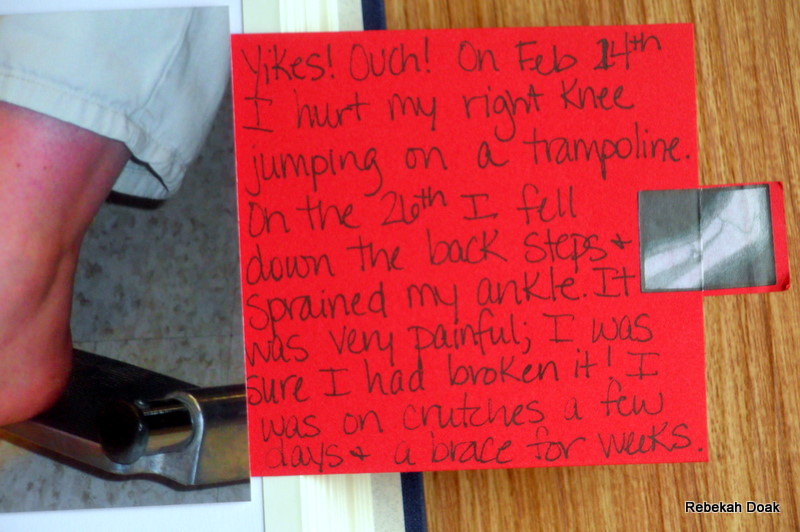 Yikes! Ouch! On Feb 14th
I hurt my right Knee
jumping on a trampoline.
On the 26th I fell
down the back steps +
sprained my ankle. It
was very painful; I was
sure I had broken it! I
was on crutches a few
days + a brace for weeks.
Rebekah Doak